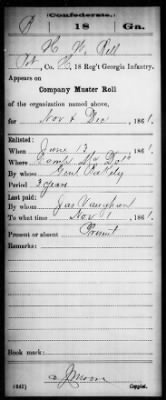 Confederate.
P 18 Ga.
H. W. Pell
Pvt, Co. H, 18 Reg't Georgia Infantry.
Appears on
Company Muster Roll
of the organization named above,
for Nov & Dec, 1861.
Enlisted:
When June 13, 1861.
Where Camp
By whom Genl
Period 3 years
Last paid:
By whom Jas Vaughan
To what time Nov 1, 1861.
Present or absent Present
Remarks:
Book mark:
(642)
Copyist.